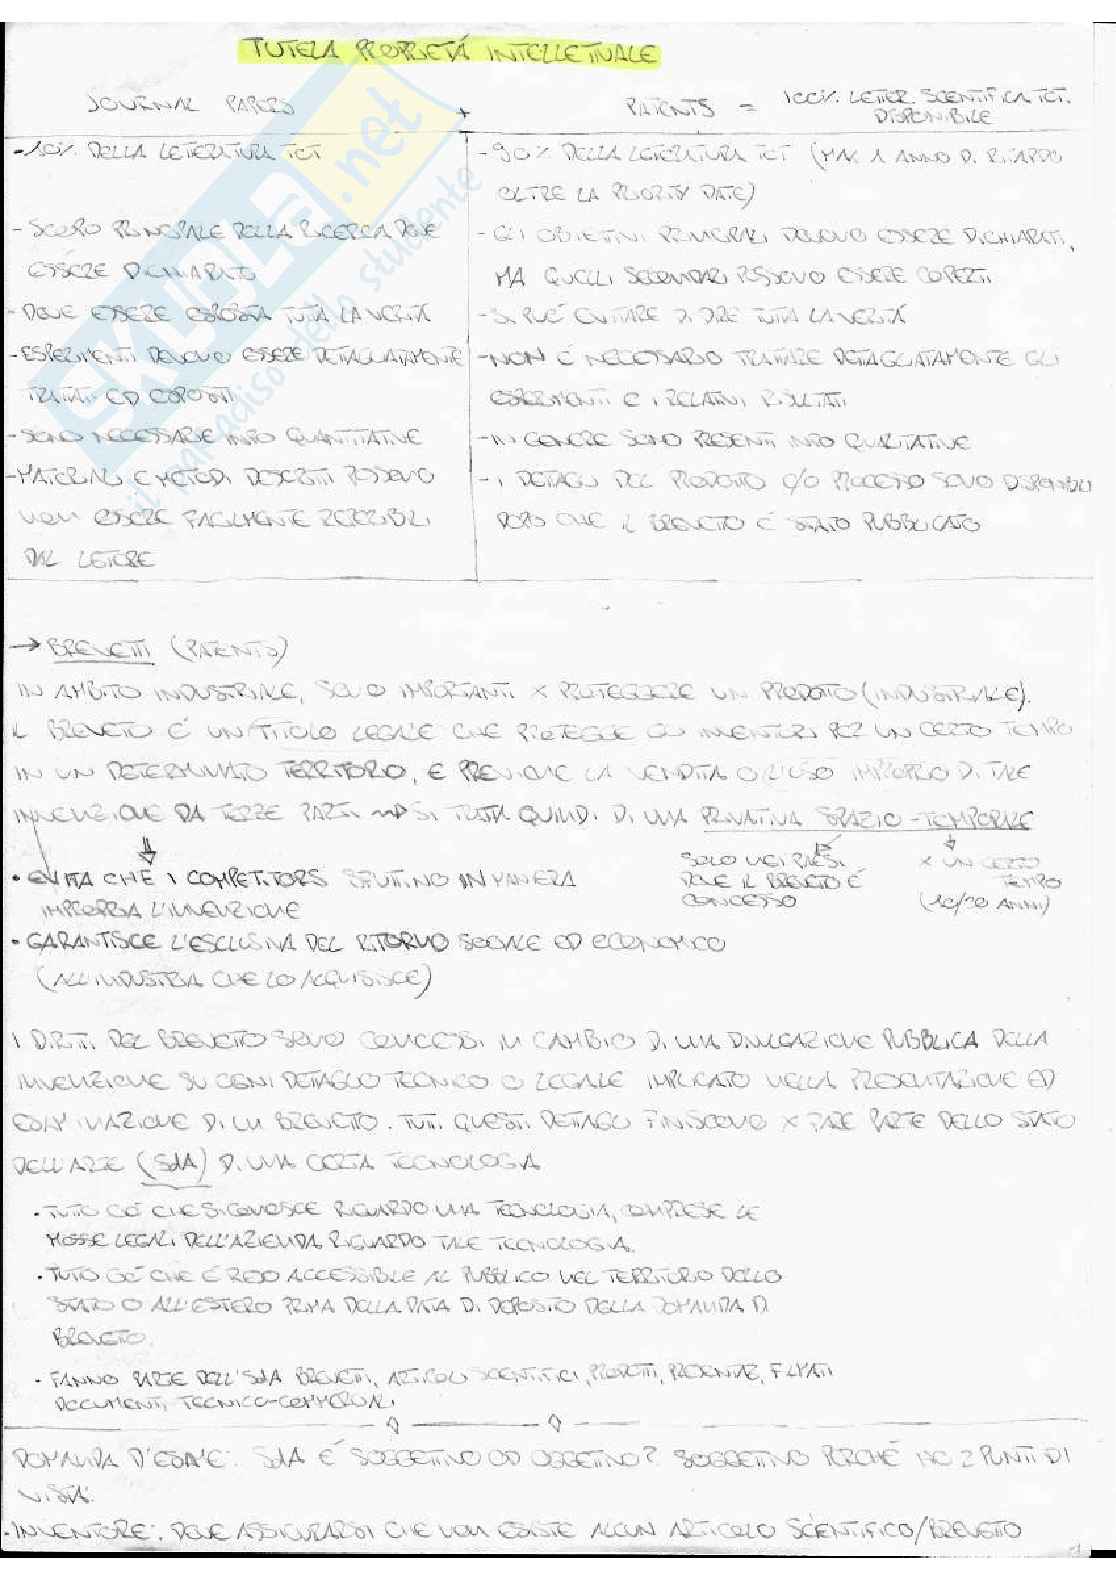 TUTELA PROPRIETÁ INTELLETTUALE
JOURNAL PAPERS + PATENTS = 100% LETTER. SCIENTIFICA TCT. DISPONIBILE
- 10% DELLA LETTERATURA TCT
- SCOPO PRINCIPALE DELLA RICERCA DEVE
ESSERE DICHIARATO
- DEVE ESSERE ESPOSTA TUTTA LA VERITÀ
- ESPERIMENTI DEVONO ESSERE DETTAGLIATAMENTE
TRATTATI ED ESPOSTI
- SONO NECESSARIE INFO QUANTITATIVE
- MATERIALI E METODI DESCRITTI POSSONO
NON ESSERE FACILMENTE REPERIBILI
DAL LETTORE
- 90% DELLA LETTERATURA TCT (MAX 1 ANNO DI RITARDO
OLTRE LA PRIORITY DATE)
- GLI OBIETTIVI PRIMARI DEVONO ESSERE DICHIARATI,
MA QUELLI SECONDARI POSSONO ESSERE COPERTI
- SI PUÒ EVITARE DI DIRE TUTTA LA VERITÀ
- NON È NECESSARIO TRATTARE DETTAGLIATAMENTE GLI
ESPERIMENTI E I RELATIVI RISULTATI
- IN GENERE SONO PRESENTI INFO QUALITATIVE
- I DETTAGLI DEL PRODOTTO E/O PROCESSO SONO DISPONIBILI
DOPO CHE IL BREVETTO È STATO PUBBLICATO
→ BREVETTI (PATENTS)
IN AMBITO INDUSTRIALE, SONO IMPORTANTI X PROTEGGERE UN PRODOTTO (INDUSTRIALE).
IL BREVETTO È UN TITOLO LEGALE CHE PROTEGGE GLI INVENTORI PER UN CERTO TEMPO
IN UN DETERMINATO TERRITORIO, E PREVIENE LA VENDITA O L'USO IMPROPRIO DI TALE
INVENZIONE DA TERZE PARTI → SI TRATTA QUINDI DI UNA PRIVATIVA SPAZIO-TEMPORALE
SOLO NEI PAESI
DOVE IL BREVETTO È
CONCESSO
X UN CERTO
TEMPO
(10/20 ANNI)
• EVITA CHE I COMPETITORS SFRUTTINO IN MANIERA
IMPROPRIA L'INVENZIONE
• GARANTISCE L'ESCLUSIVA DEL RITORNO SOCIALE ED ECONOMICO
(ALL'INDUSTRIA CHE LO ACQUISISCE)
I DIRITTI DEL BREVETTO SONO CONCESSI IN CAMBIO DI UNA DIVULGAZIONE PUBBLICA DELLA
INVENZIONE SU OGNI DETTAGLIO TECNICO O LEGALE IMPLICATO NELLA PRESENTAZIONE ED
ESAMINAZIONE DI UN BREVETTO. TUTTI QUESTI DETTAGLI FINISCONO X FARE PARTE DELLO STATO
DELL'ARTE (SdA) DI UNA CERTA TECNOLOGIA
• TUTTO CIÒ CHE SI CONOSCE RIGUARDO UNA TECNOLOGIA, COMPRESE LE
MOSSE LEGALI DELL'AZIENDA RIGUARDO TALE TECNOLOGIA.
• TUTTO CIÒ CHE È RESO ACCESSIBILE AL PUBBLICO NEL TERRITORIO DELLO
STATO O ALL'ESTERO PRIMA DELLA DATA DI DEPOSITO DELLA DOMANDA DI
BREVETTO.
• FANNO PARTE DELL'SdA BREVETTI, ARTICOLI SCIENTIFICI, PRODOTTI,
DOCUMENTI TECNICO-COMMERCIALI
DOMANDA D'ESAME: SdA È SOGGETTIVO OD OGGETTIVO? SOGGETTIVO PERCHÉ HO 2 PUNTI DI
VISTA:
- INVENTORE: DEVE ASSICURARSI CHE NON ESISTE ALCUN ARTICOLO SCIENTIFICO/BREVETTO
SKUOLA.net
il paradiso dello studente